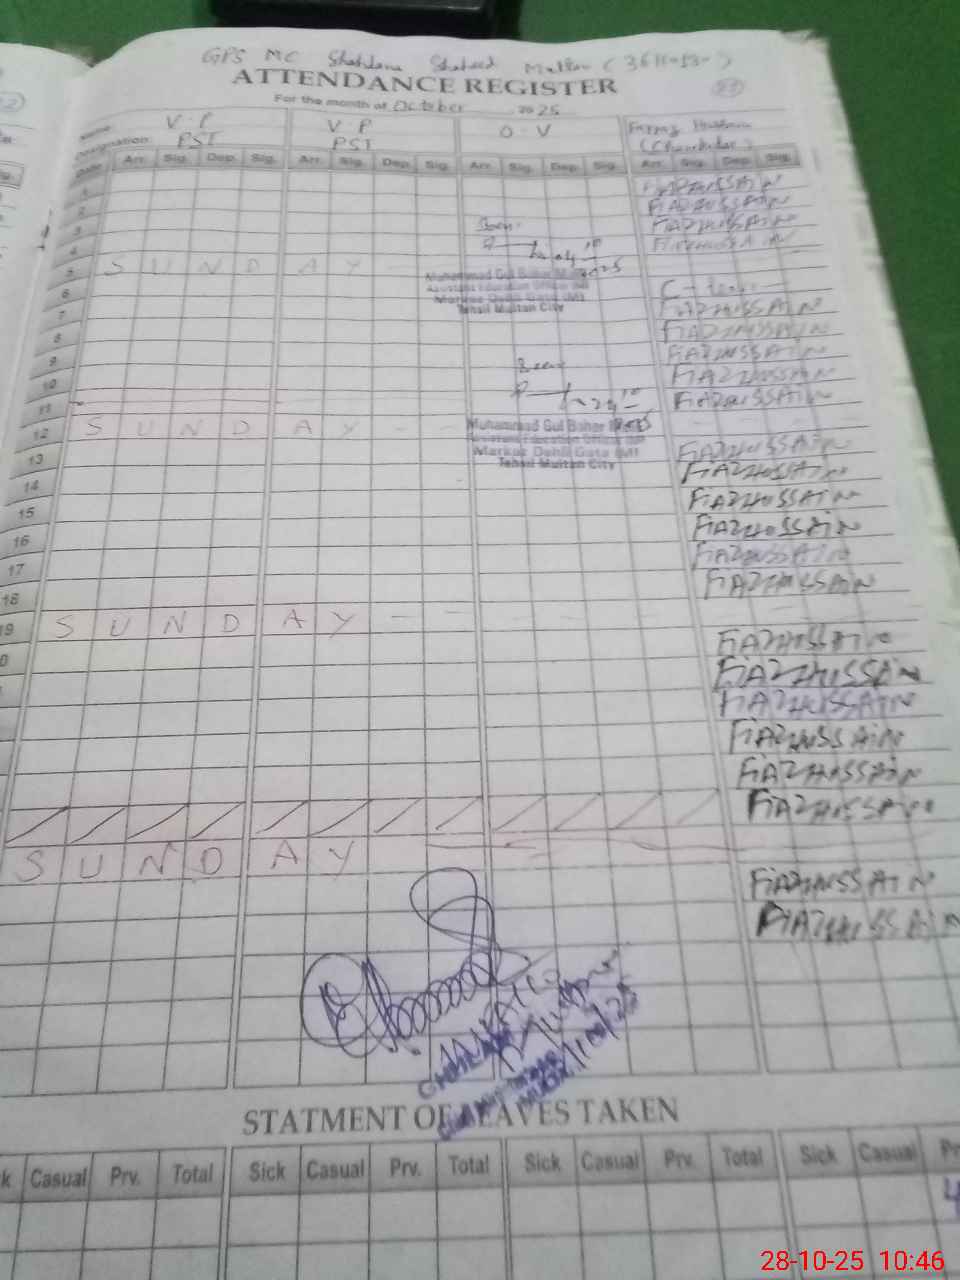 GPS MC Shahdana Shaheed Multan
ATTENDANCE REGISTER
For the month of October 2025
Name: V.P V.P O.V
Designation: PST PST (Chowkidar)
Date Arr. Sig. Dep. Sig. Arr. Sig. Dep. Sig. Arr. Sig. Dep. Sig. Arr. Sig. Dep. Sig.
1 FIAZHUSSAIN
2 FIAZHUSSAIN
3 FIAZHUSSAIN
4 FIAZHUSSAIN
5 S U N D A Y
Muhammad Gul Baher
Assistant Education Officer (M)
Markaz Dehli Gate (M)
Tehsil Multan City
6
7 FIAZHUSSAIN
8 FIAZHUSSAIN
9 FIAZHUSSAIN
10 FIAZHUSSAIN
11 FIAZHUSSAIN
12 S U N D A Y - -
Muhammad Gul Baher
Assistant Education Officer (M)
Markaz Dehli Gate (M)
Tehsil Multan City
13 FIAZHUSSAIN
14 FIAZHUSSAIN
15 FIAZHUSSAIN
16 FIAZHUSSAIN
17 FIAZHUSSAIN
18 FIAZHUSSAIN
19 S U N D A Y - -
0 FIAZHUSSAIN
FIAZHUSSAIN
FIAZHUSSAIN
FIAZHUSSAIN
FIAZHUSSAIN
FIAZHUSSAIN
S U N D A Y
FIAZHUSSAIN
FIAZHUSSAIN
STATMENT OF LEAVES TAKEN
Sick Casual Prv. Total Sick Casual Prv. Total Sick Casual Prv. Total Sick Casual
4
28-10-25 10:46